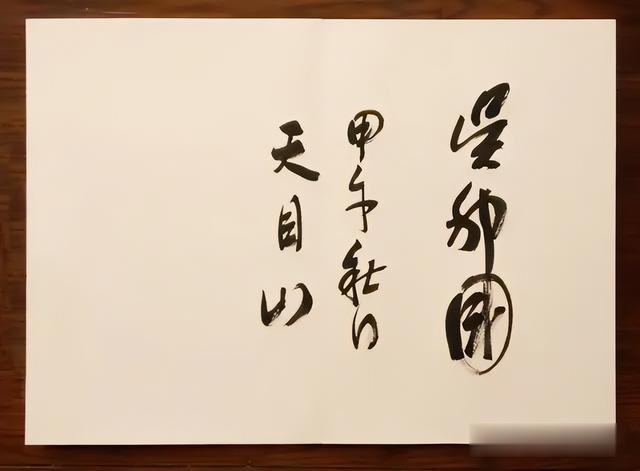 吴邦国
甲午秋日
天目山